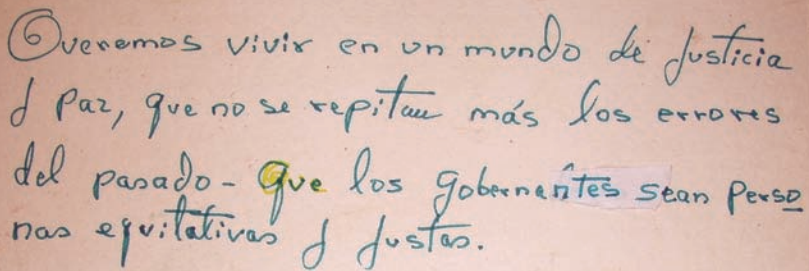 Queremos vivir en un mundo de Justicia
y Paz, que no se repitan más los errores
del pasado - que los gobernantes sean perso
nas equitativas y justas.